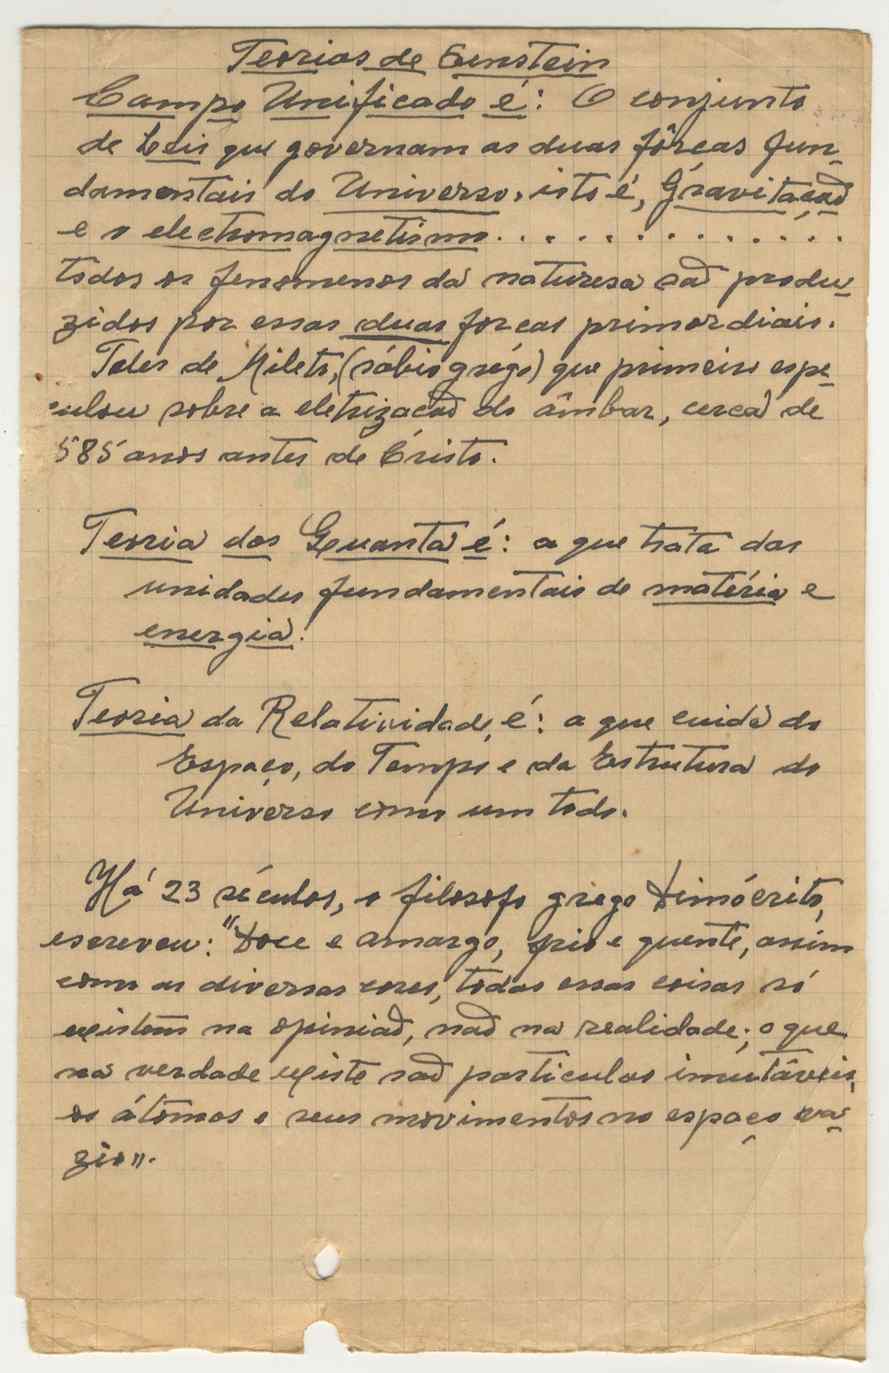 Teorias de Einstein
Campo Unificado é: O conjunto
de Leis que governam as duas fôrcas fun-
damentais do Universo, isto é, Gravitação
e o electromagnetismo. . . . . . . . . . . . . .
todos os fenomenos da naturesa são produ-
zidos por essas duas forcas primordiais.
Tales de Mileto, (sábio grégo) que primeiro espe-
culou sobre a eletrização do âmbar, cerca de
585 anos antes de Cristo.
Teoria dos Quanta é: a que trata das
unidades fundamentais de matéria e
energia.
Teoria da Relatividade, é: a que cuida do
Espaço, do Tempo e da Estrutura do
Univérso como um todo.
Há 23 séculos, o filosofo grego Dimócrito,
escreveu: "Doce e amargo, frio e quente, assim
como as diversas cores, todas essas coisas só
existem na opinião, não na realidade; o que
na verdade existe são particulas imutáveis,
os átomos e seus movimentos no espaço va-
zio".